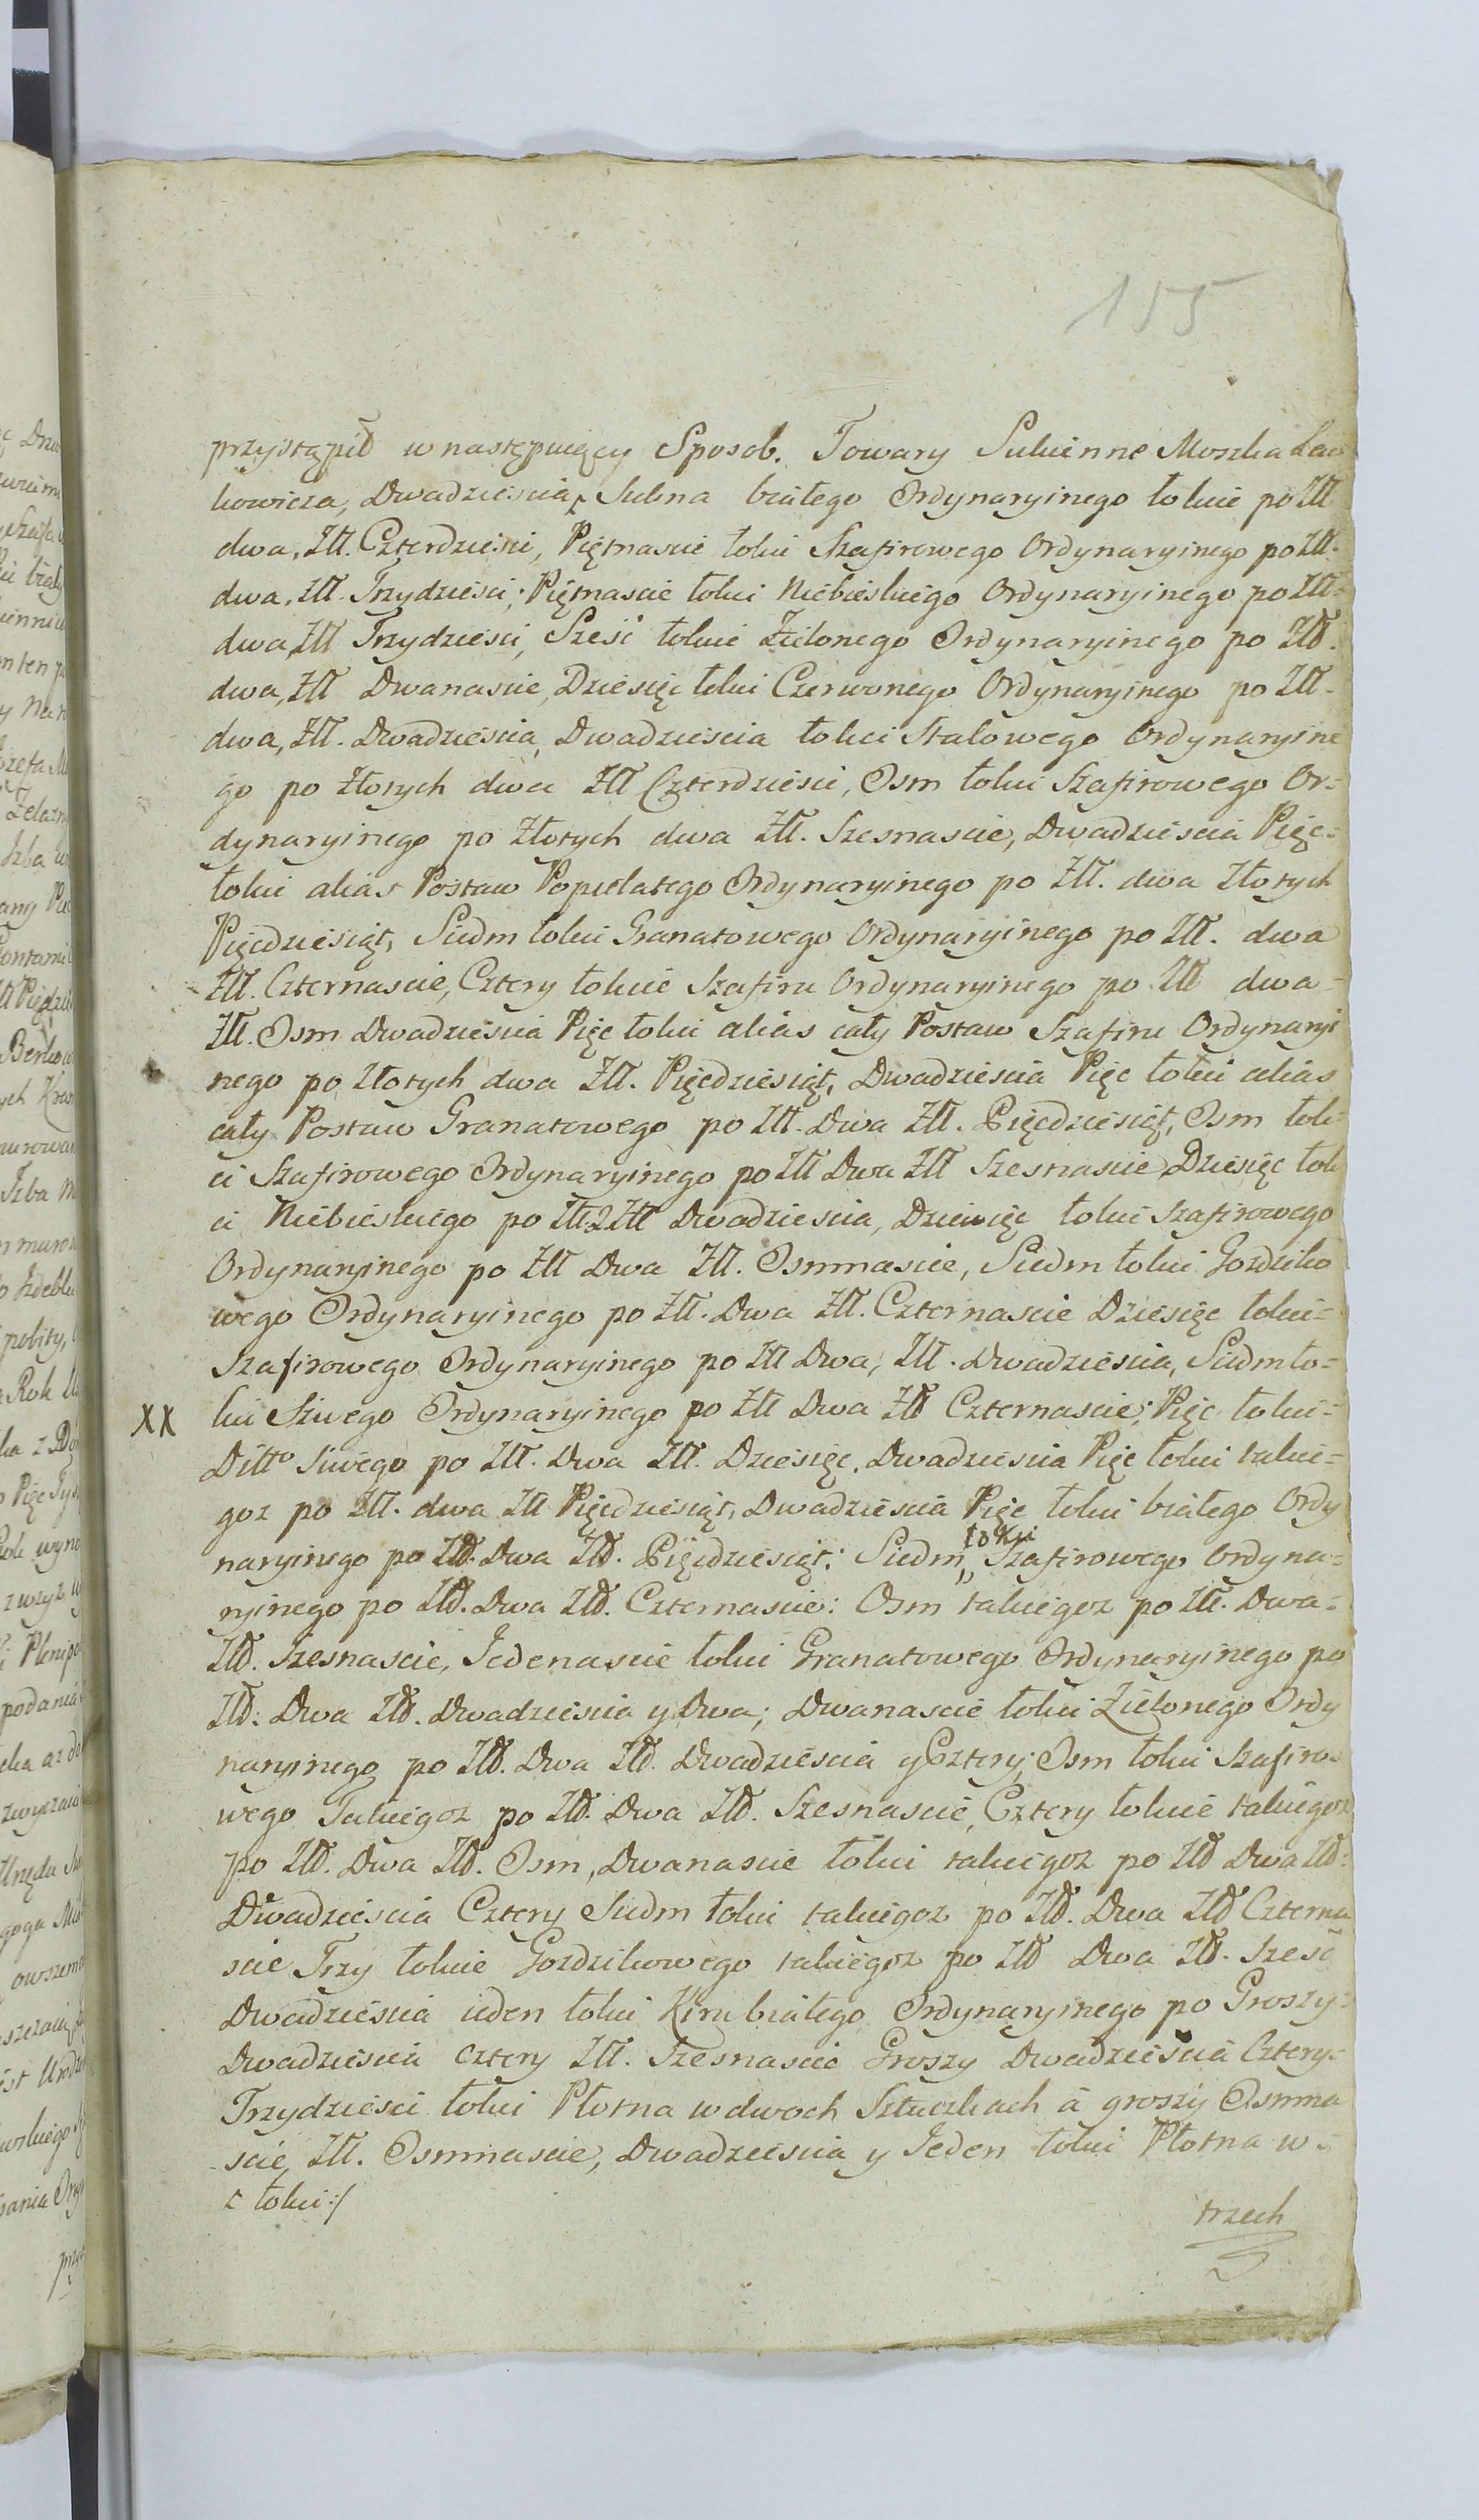 155
przystąpił w następuiący Sposob. Towary Sukienne Moszka
kowicza, Dwadzieścia Sukna białego Ordynaryinego łokcie po Złł
dwa, Złł. Czterdzieści, Piętnascie łokci Szafirowego Ordynaryinego po Złł.
dwa, Złł. Trzydziesci; Piętnascie łokci Niebieskiego Ordynaryinego po Złł=
dwa, Złł Trzydziesci, Sześć łokcie Zielonego Ordynaryinego po Złł.
dwa, Złł Dwanascie, Dziesięc łokci Czerwonego Ordynaryinego po Złł.
dwa, Złł. Dwadzieścia, Dwadziescia łokci Stalowego Ordynaryine
go po Złotych dwa Złł Czterdziesci, Osm łokci Szafirowego Or=
dynaryinego po Złotych dwa Złł. Szesnascie, Dwadzieścia Pięc=
łokci alias Postaw Popielatego Ordynaryinego po Złł. dwa Złotych
Pięcdziesiąt, Siedm łokci Granatowego Ordynaryinego po Złł. dwa
Złł. Czternascie, Cztery łokcie Szafiru Ordynaryinego po Złł dwa=
Złł. Osm Dwadzieścia Pięc łokci alias cały Postaw Szafiru Ordynaryi
nego po Złotych dwa Złł. Pięcdziesiąt, Dwadziescia Pięc łokci alias
cały Postaw Granatowego po Złł. Dwa Złł. Pięcdziesiąt, Osm łok=
ci Szafirowego Ordynaryinego po Złł Dwa Złł Szesnascie, Dziesięc łok
ci Niebieskiego po Złł 2 Złł Dwadziescia, Dziewięc łokci Szafirowego
Ordynaryinego po Złł Dwa Złł. Osmnascie, Siedm łokci Gozdziko
wego Ordynaryinego po Złł. Dwa Złł. Czternascie Dziesięc łokci=
Szafirowego Ordynaryinego po Złł Dwa, Złł. Dwadzieścia, Siedm ło=
XX kci Siwego Ordynaryinego po Złł Dwa Złł Czternascie; Pięc łokci=
Ditto Siwego po Złł. Dwa Złł. Dziesięc. Dwadziescia Pięc łokci takie=
goz po Złł. dwa Złł Pięcdziesiąt, Dwadzieścia Pięc łokci białego Ordy
naryinego po Złł. Dwa Złł. Pięcdziesiąt: Siedm łokci Szafirowego Ordyna=
ryinego po Złł. Dwa Złł. Czternascie: Osm takiegoz po Złł. Dwa=
Złł. Szesnascie, Jedenascie łokci Granatowego Ordynaryinego po
Złł: Dwa Złł. Dwadzieścia y Dwa; Dwanascie łokci Zielonego Ordy
naryinego po Złł. Dwa Złł. Dwadzieścia y Cztery; Osm łokci Szafiro=
wego Takiegoz po Złł. Dwa Złł. Szesnascie, Cztery łokcie takiegoz
po Złł. Dwa Złł. Osm, Dwanascie łokci takiegoz po Złł Dwa Złł:
Dwadzieścia Cztery Siedm łokci takiegoz po Złł. Dwa Złł Czterna
scie Trzy łokcie Gozdzikowego takiegoz po Złł Dwa Złł. Szesc
Dwadzieścia ieden łokci Kiru białego Ordynaryinego po Groszy=
Dwadzieścia cztery Złł. Szesnascie Groszy Dwadzieścia Cztery=
Trzydzieści łokci Płotna w dwoch Sztuczkach á groszy Osmna
scie, Złł. Osmnascie, Dwadziescia y Jeden łokci Płotna w=
łokci:/
trzech